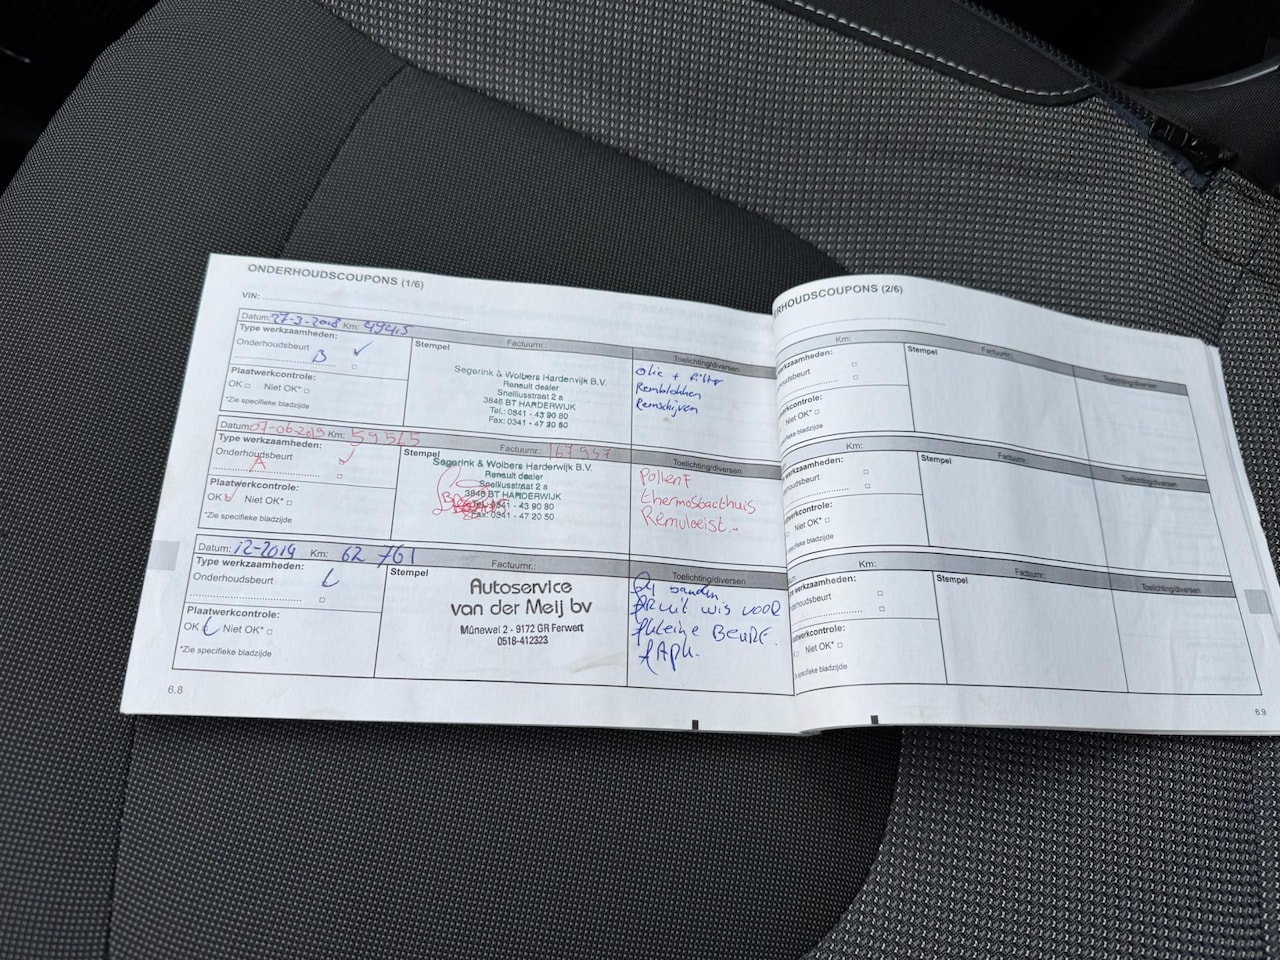 ONDERHOUDSCOUPONS (1/6)
VIN:
Datum: 27-3-2018 Km: 49415
Type werkzaamheden:
Onderhoudsbeurt
B
Plaatwerkcontrole:
OK Niet OK*
*Zie specifieke bladzijde
Stempel Factuurnr.:
Segerink & Wolbers Harderwijk B.V.
Renault dealer
Snelliusstraat 2 a
3846 BT HARDERWIJK
Tel.: 0341 - 43 90 80
Fax: 0341 - 47 20 50
Toelichting/diversen
Olie + filter
Remblokken
Remschijven
Datum: 07-06-2019 Km: 59515
Type werkzaamheden:
Onderhoudsbeurt
A
Plaatwerkcontrole:
OK Niet OK*
*Zie specifieke bladzijde
Stempel Factuurnr.: 167957
Segerink & Wolbers Harderwijk B.V.
Renault dealer
Snelliusstraat 2 a
3846 BT HARDERWIJK
Tel.: 0341 - 43 90 80
Fax: 0341 - 47 20 50
Toelichting/diversen
Pollenf
thermostaathuis
Remvloeist..
Datum: 12-2019 Km: 62 761
Type werkzaamheden:
Onderhoudsbeurt
Plaatwerkcontrole:
OK Niet OK*
*Zie specifieke bladzijde
Stempel Factuurnr.:
Autoservice
van der Meij bv
Mûnewei 2 - 9172 GR Ferwert
0518-412323
Toelichting/diversen
banden
Ruit wis voor
kleine Beurt.
Apk.
6.8
ERHOUDSCOUPONS (2/6)
Km:
werkzaamheden:
Stempel Factuurnr.:
Toelichting/diversen
Niet OK*
Km:
werkzaamheden:
Stempel Factuurnr.:
Toelichting/diversen
Niet OK*
Km:
werkzaamheden:
Stempel Factuurnr.:
Toelichting/diversen
Niet OK*
6.9